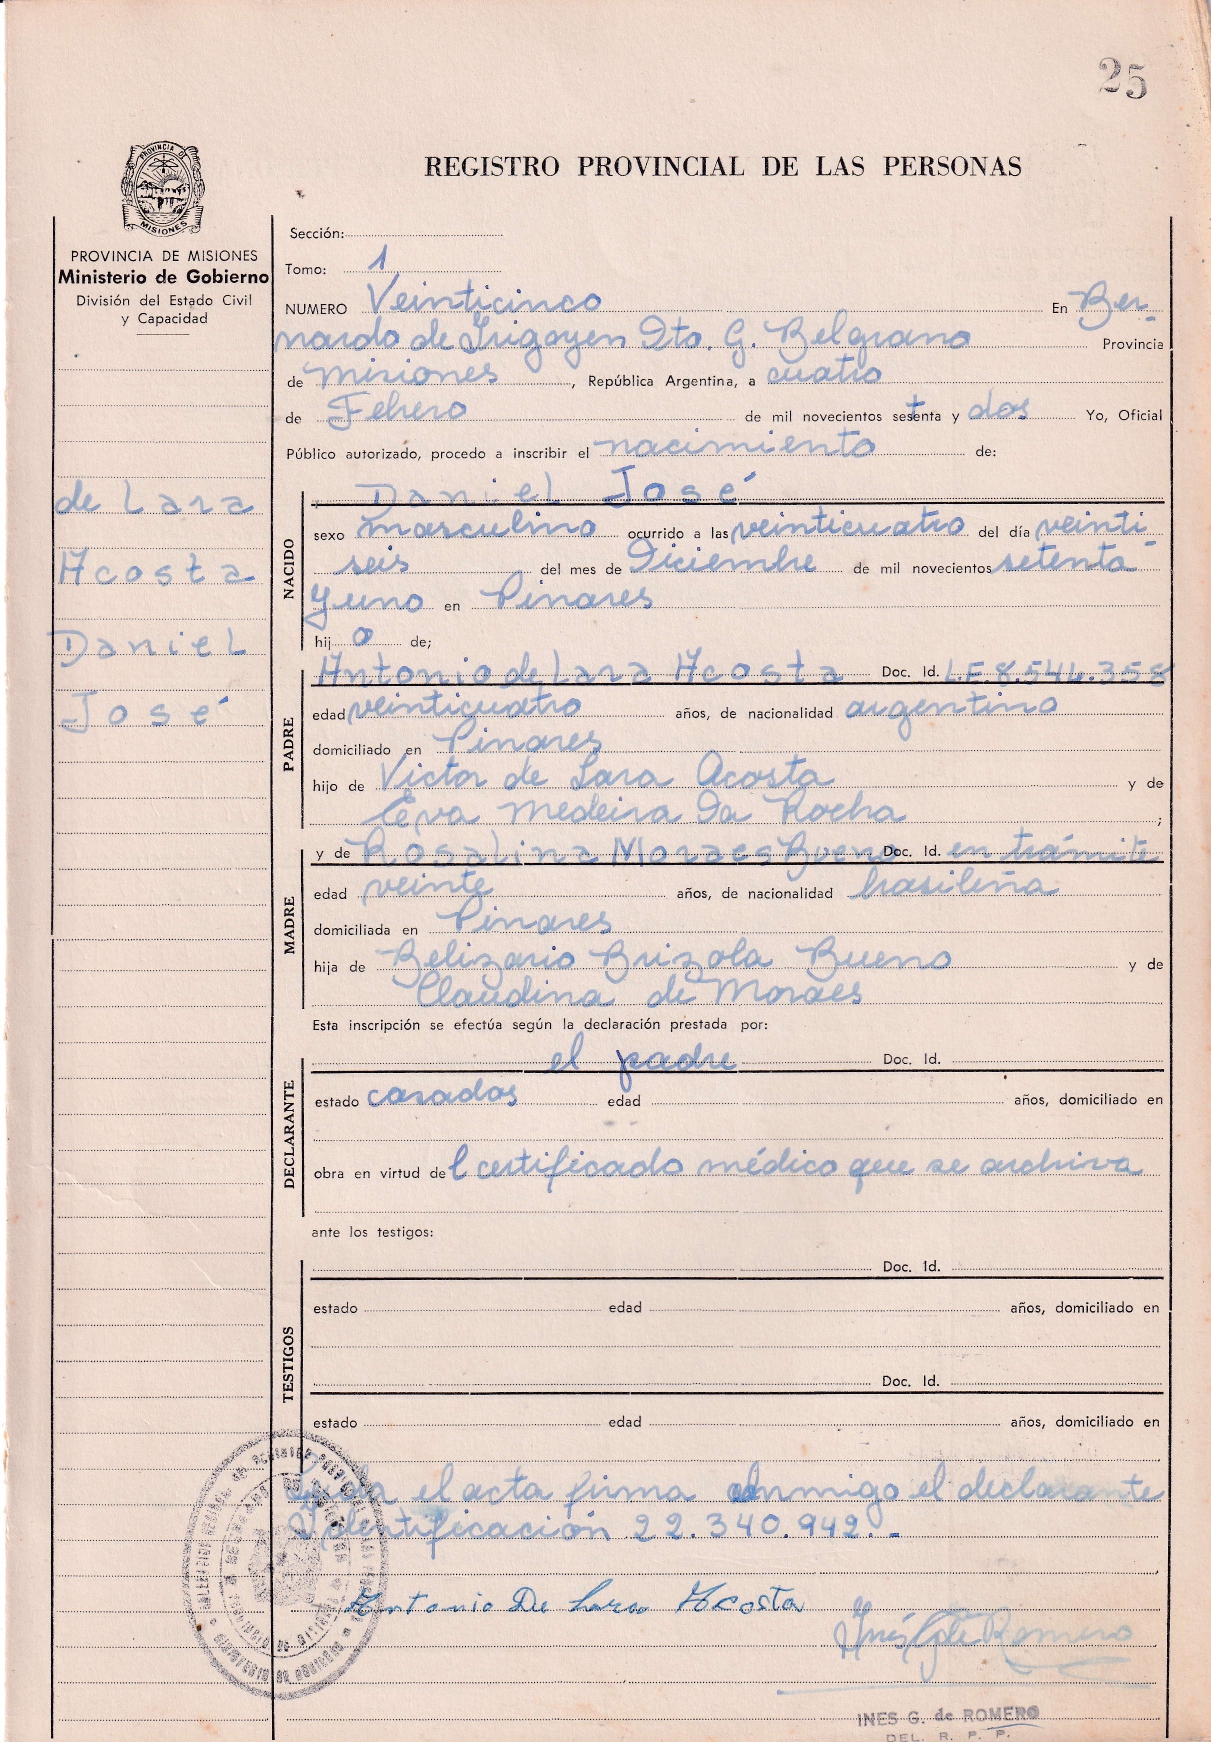 25
PROVINCIA DE
MISIONES
REGISTRO PROVINCIAL DE LAS PERSONAS
PROVINCIA DE MISIONES
Ministerio de Gobierno
División del Estado Civil
y Capacidad
de Lara
Acosta
Daniel
José
Sección:
Tomo: 1
NUMERO Veinticinco En Ber-
nardo de Irigoyen Dto. G. Belgrano Provincia
de Misiones, República Argentina, a cuatro
de Febrero de mil novecientos setenta y dos Yo, Oficial
Público autorizado, procedo a inscribir el nacimiento de:
NACIDO
Daniel José
sexo masculino ocurrido a las veinticuatro del día veinti-
seis del mes de Diciembre de mil novecientos setenta
y uno en Pinares
hijo de;
PADRE
Antonio de Lara Acosta Doc. Id. L.E. 8.544.358
edad veinticuatro años, de nacionalidad argentino
domiciliado en Pinares
hijo de Victor de Lara Acosta y de
Eva Medeira Da Rocha;
MADRE
y de Rosalina Moraes Bueno Doc. Id. en trámite
edad veinte años, de nacionalidad brasileña
domiciliada en Pinares
hija de Belizario Brizola Bueno y de
Claudina de Moraes
Esta inscripción se efectúa según la declaración prestada por:
DECLARANTE
el padre Doc. Id.
estado casados edad años, domiciliado en
obra en virtud del certificado médico que se archiva
ante los testigos:
TESTIGOS
Doc. Id.
estado edad años, domiciliado en
Doc. Id.
estado edad años, domiciliado en
Leída el acta firma conmigo el declarante
Identificación 22.340.942.-
Antonio De Lara Acosta
Inés G. de Romero
INES G. de ROMERO
DEL. R. P. P.